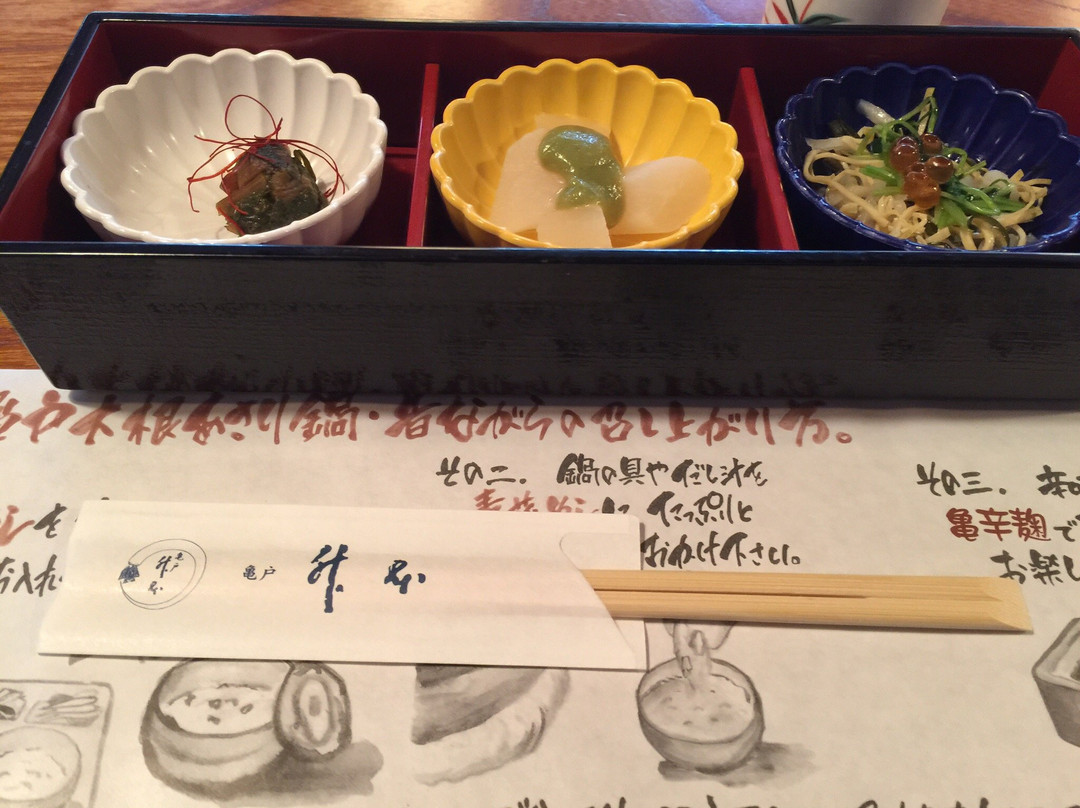 戸大根あさり鍋・昔ながらの召し上がり方。
その二. 鍋の具やだし汁を
たっぷりと
おかけ下さい。
その三. 辛
亀辛麹で
お楽し
を
お入れ
亀戸 升本
亀戸 升本